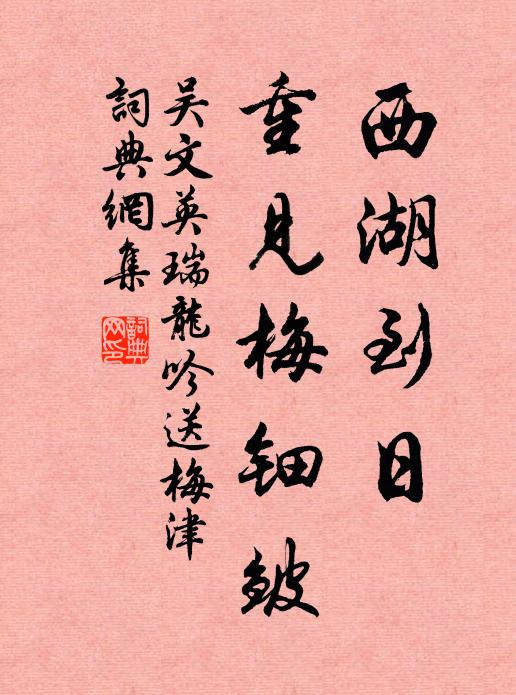 西湖到日
重見梅鈿皺
吴文英瑞龍吟送梅津
詞典網集
詞典網印